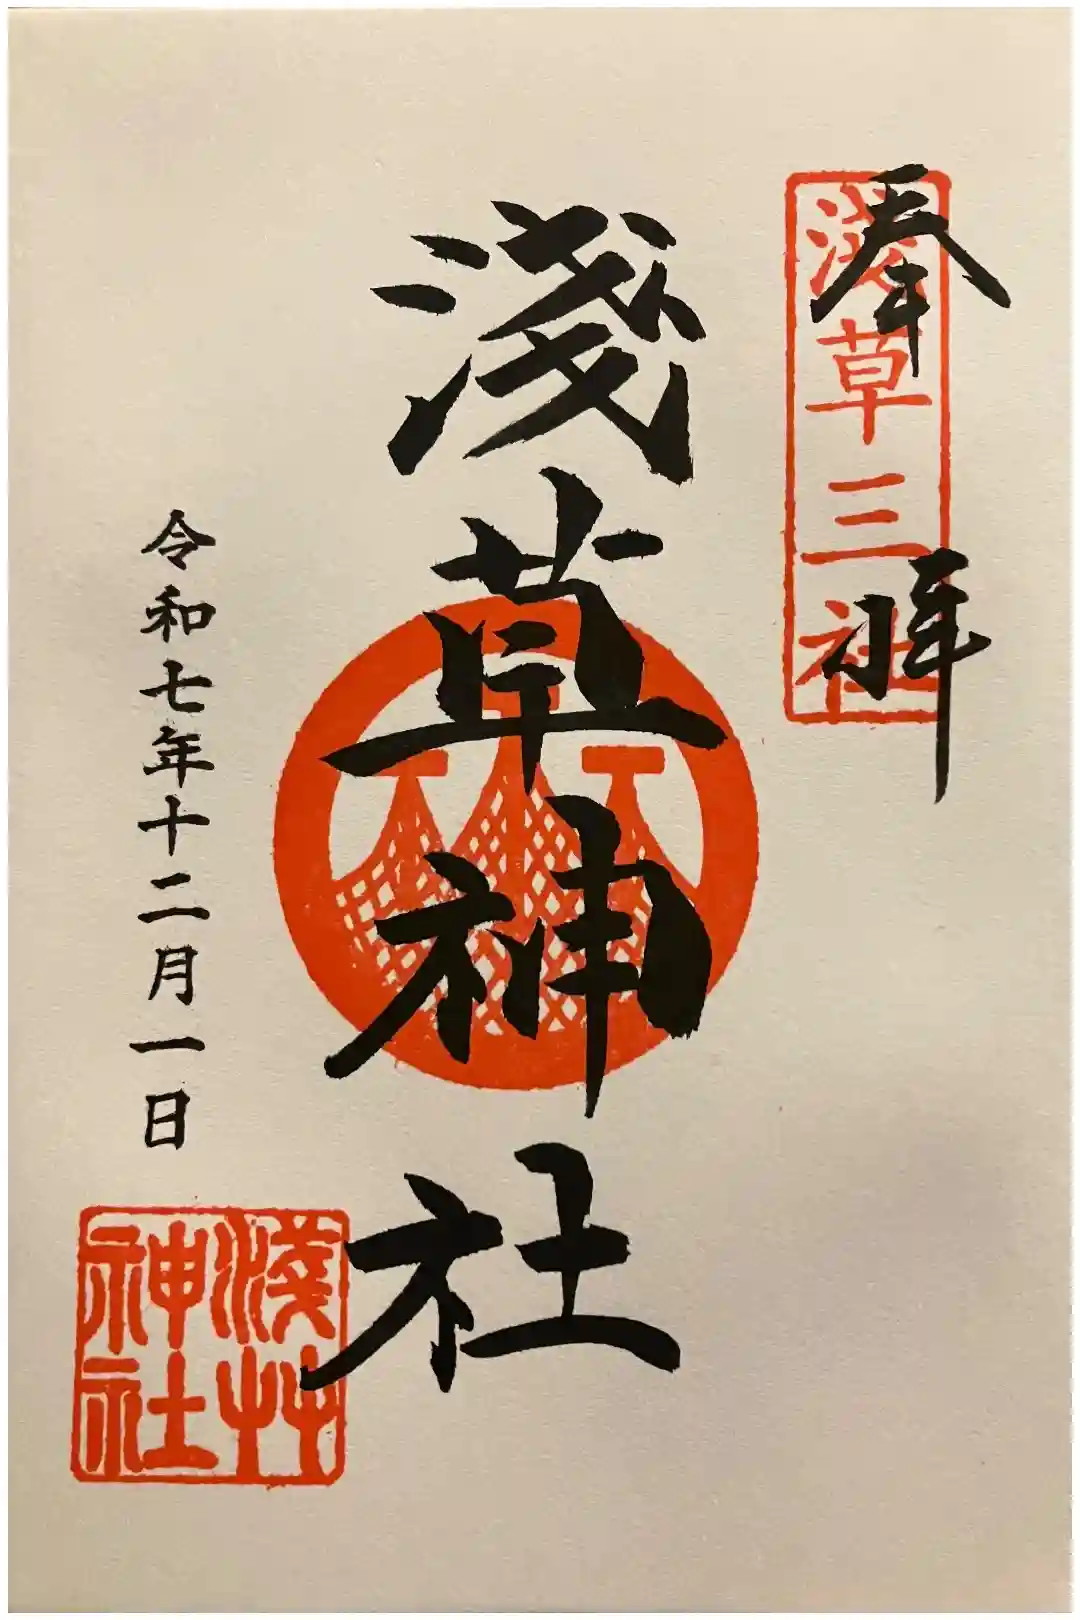 奉拝
淺草三社
淺草神社
令和七年十二月一日
淺艸
神社